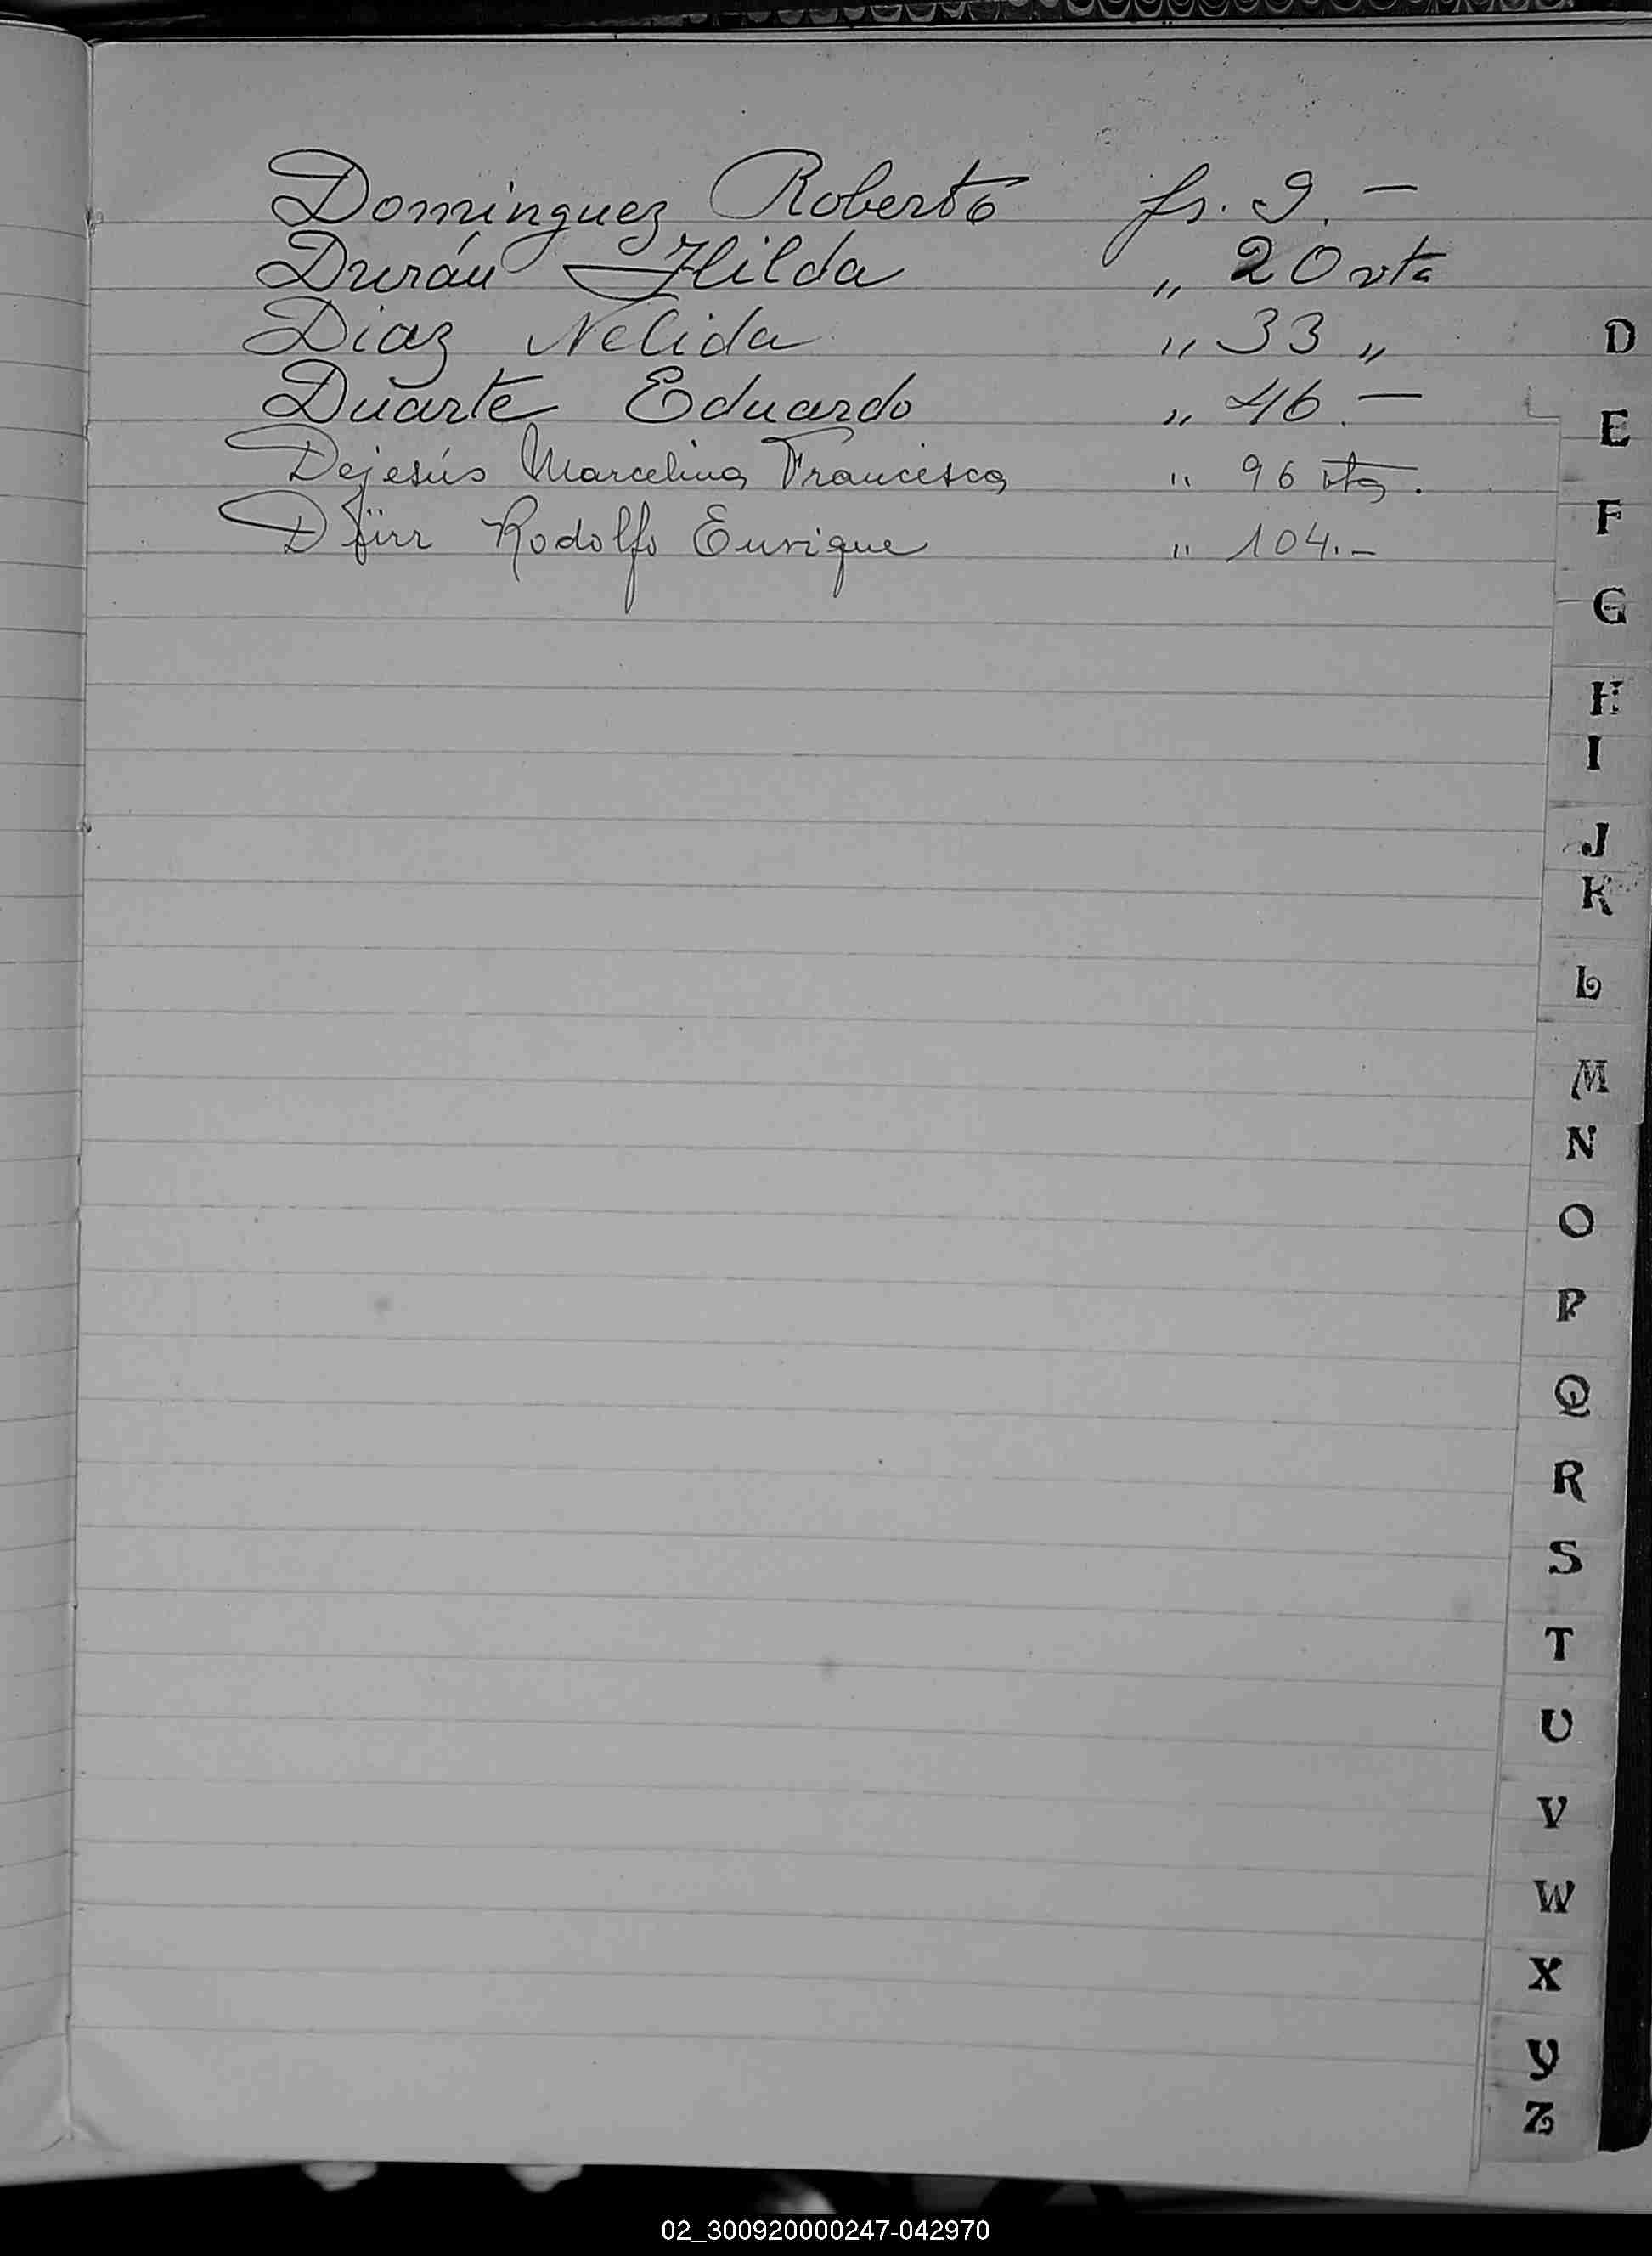 Dominguez Roberto fs. 9. —
Durán Hilda „ 20 vta
Diaz Nelida „ 33 „
Duarte Eduardo „ 46. —
Dejesús Marcelina Francisca " 96 vta.
Dürr Rodolfo Enrique " 104. —
D
E
F
G
H
I
J
K
L
M
N
O
P
Q
R
S
T
U
V
W
X
Y
Z
02_300920000247-042970